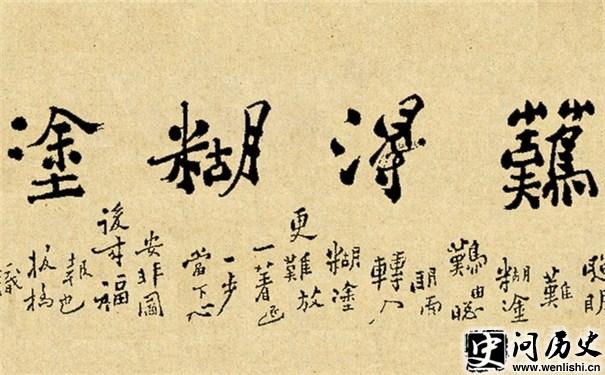 難得糊塗
聰明
難
糊塗
難由聰
明而
轉入
糊塗
更難放
一著退
一步
當下心
安非圖
後來福
報也
板橋
識
史
问历史
www.wenlishi.cn